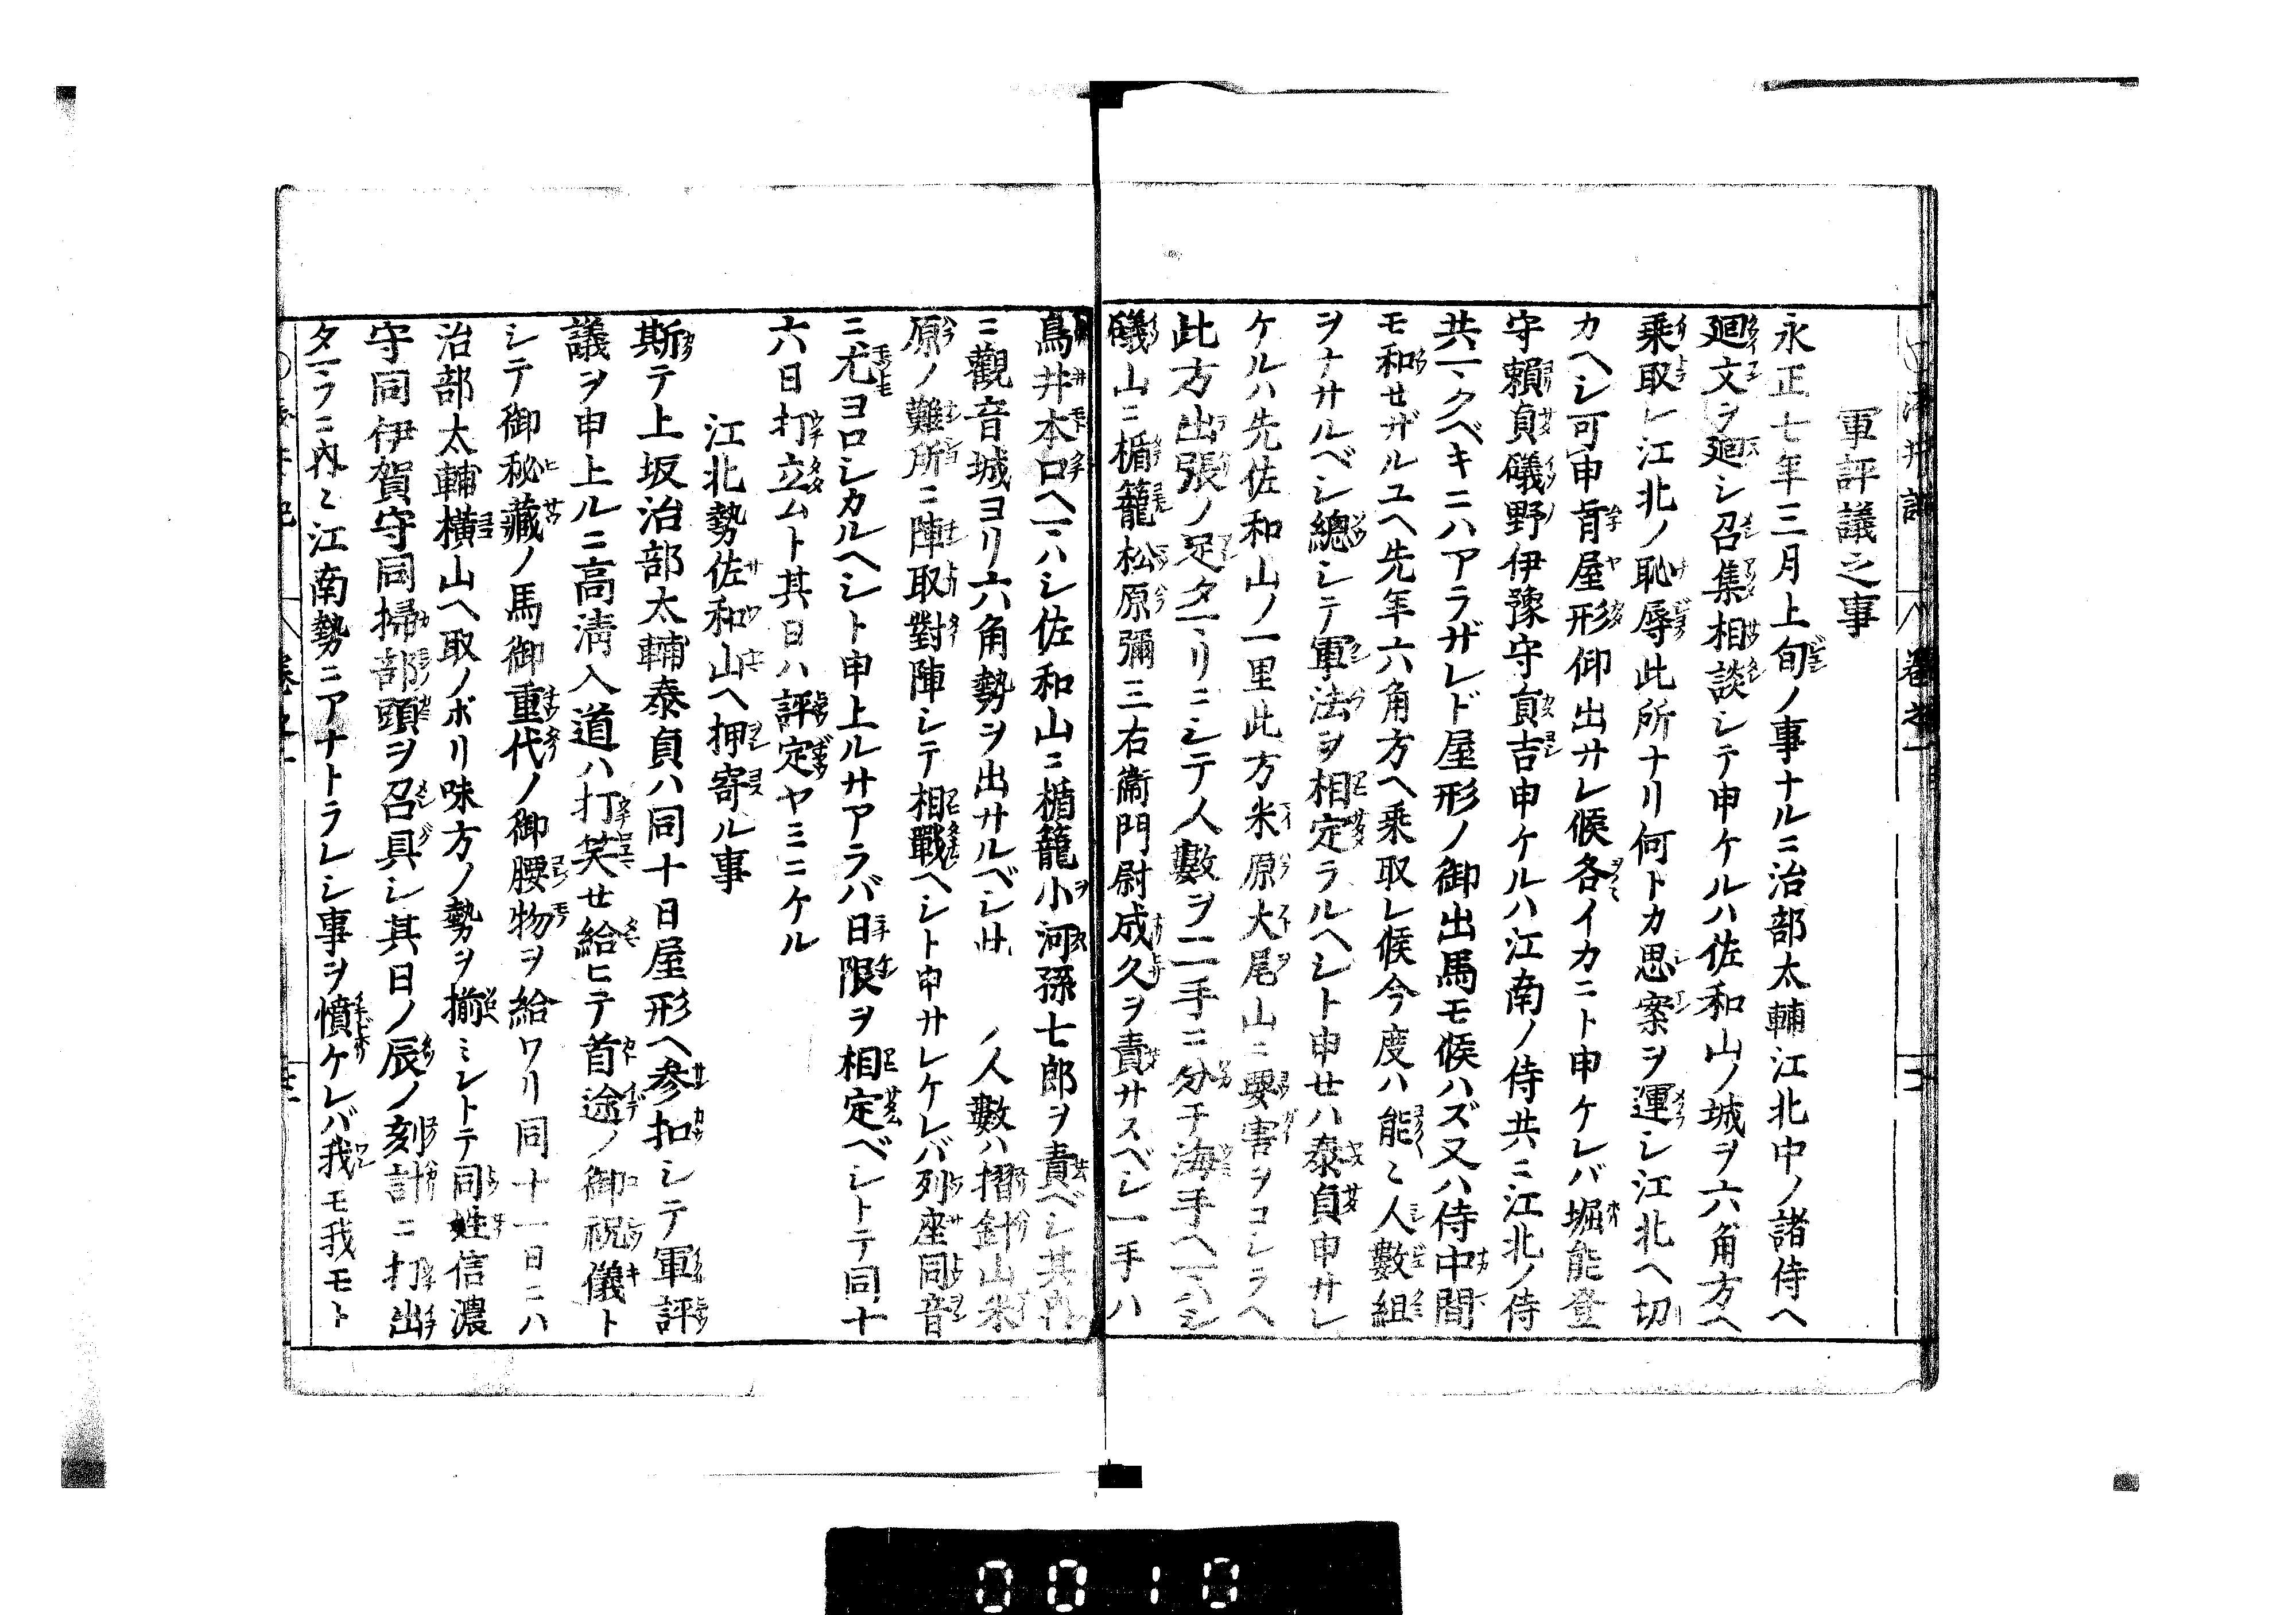 軍評議之事
永正七年三月上旬ノ事ナルニ治部太輔江北中ノ諸侍ヘ
廻文ヲ廻シ召集相談シテ申ケルハ佐和山ノ城ヲ六角方ヘ
乗取レ江北ノ恥辱此所ナリ何トカ思案ヲ運シ江北ヘ切
カヘシ可申旨屋形仰出サレ候各イカニト申ケレバ堀能登
守頼貞礒野伊豫守貞吉申ケルハ江南ノ侍共ニ江北ノ侍
共一ヽクベキニハアラザレド屋形ノ御出馬モ候ハズ又ハ侍中間
モ和セザルユヘ先年六角方ヘ乗取レ候今度ハ能ミ人數組
ヲナサルベシ總シテ軍法ヲ相定ラルヘシト申セハ泰貞申サレ
ケルハ先佐和山ノ一里此方米原大尾山ニ要害ヲコシラヘ
此方出張ノ足タマリニシテ人數ヲ二手ニ分チ海手ヘマハシ
礒山ニ楯籠松原彌三右衞門尉成久ヲ責サスベシ一手ハ
鳥井本口ヘマハシ佐和山ニ楯籠小河孫七郎ヲ責ベシ其
ニ觀音城ヨリ六角勢ヲ出サルベシ廾 ノ人數ハ摺針山米
原ノ難所ニ陣取對陣シテ相戰ヘシト申サレケレバ列座同音
ニ尤ヨロシカルヘシト申上ルサアラバ日限ヲ相定ベシトテ同十
六日打立ムト其日ハ評定ヤミニケル
江北勢佐和山ヘ押寄ル事
斯テ上坂治部太輔泰貞ハ同十日屋形ヘ参扣シテ軍評
議ヲ申上ルニ高清入道ハ打笑セ給ヒテ首途ノ御祝儀ト
シテ御秘藏ノ馬御重代ノ御腰物ヲ給ワリ同十一日ニハ
治部太輔横山ヘ取ノボリ味方ノ勢ヲ揃ミレトテ同姓信濃
守同伊賀守同掃部頭ヲ召具シ其日ノ辰ノ刻計ニ打出
タマフニ内ミ江南勢ニアナトラレシ事ヲ憤ケレバ我モ我モト
0010